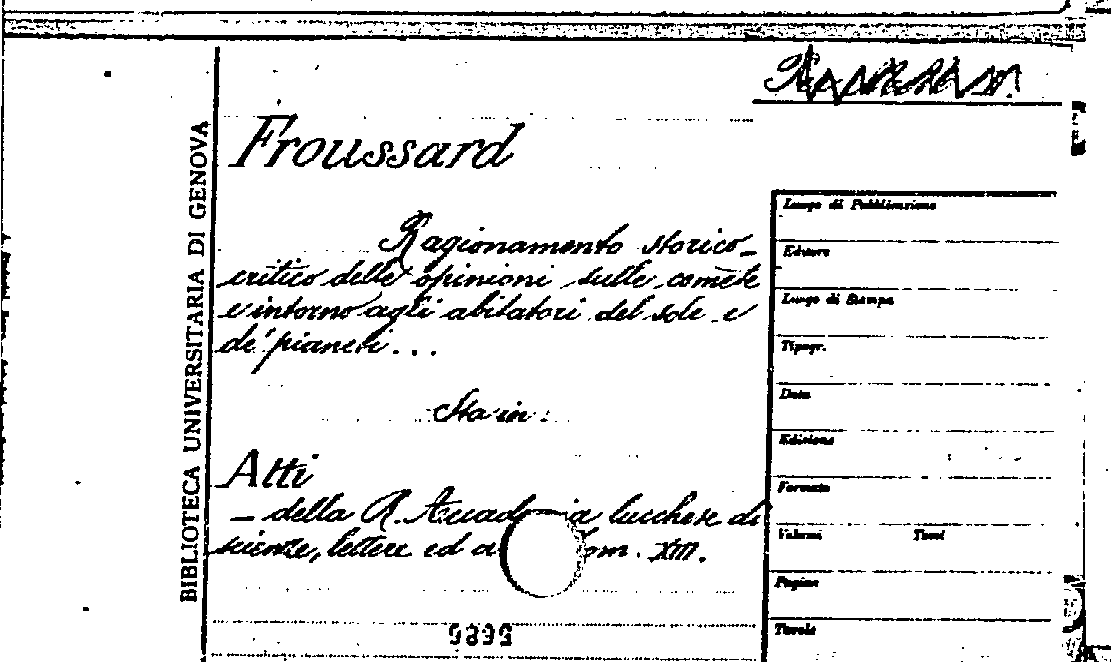 Froussard
Ragionamento storico-
critico delle opinioni sulle comete
e intorno agli abitatori del sole e
de' pianeti...
Sta in:
Atti
- della R. Accademia lucchese di
scienze, lettere ed a Tom. XIII.
BIBLIOTECA UNIVERSITARIA DI GENOVA
Luogo di Pubblicazione
Editore
Luogo di Stampa
Tipogr.
Data
Edizione
Formato
Volumi Tomi
Pagine
Tavole